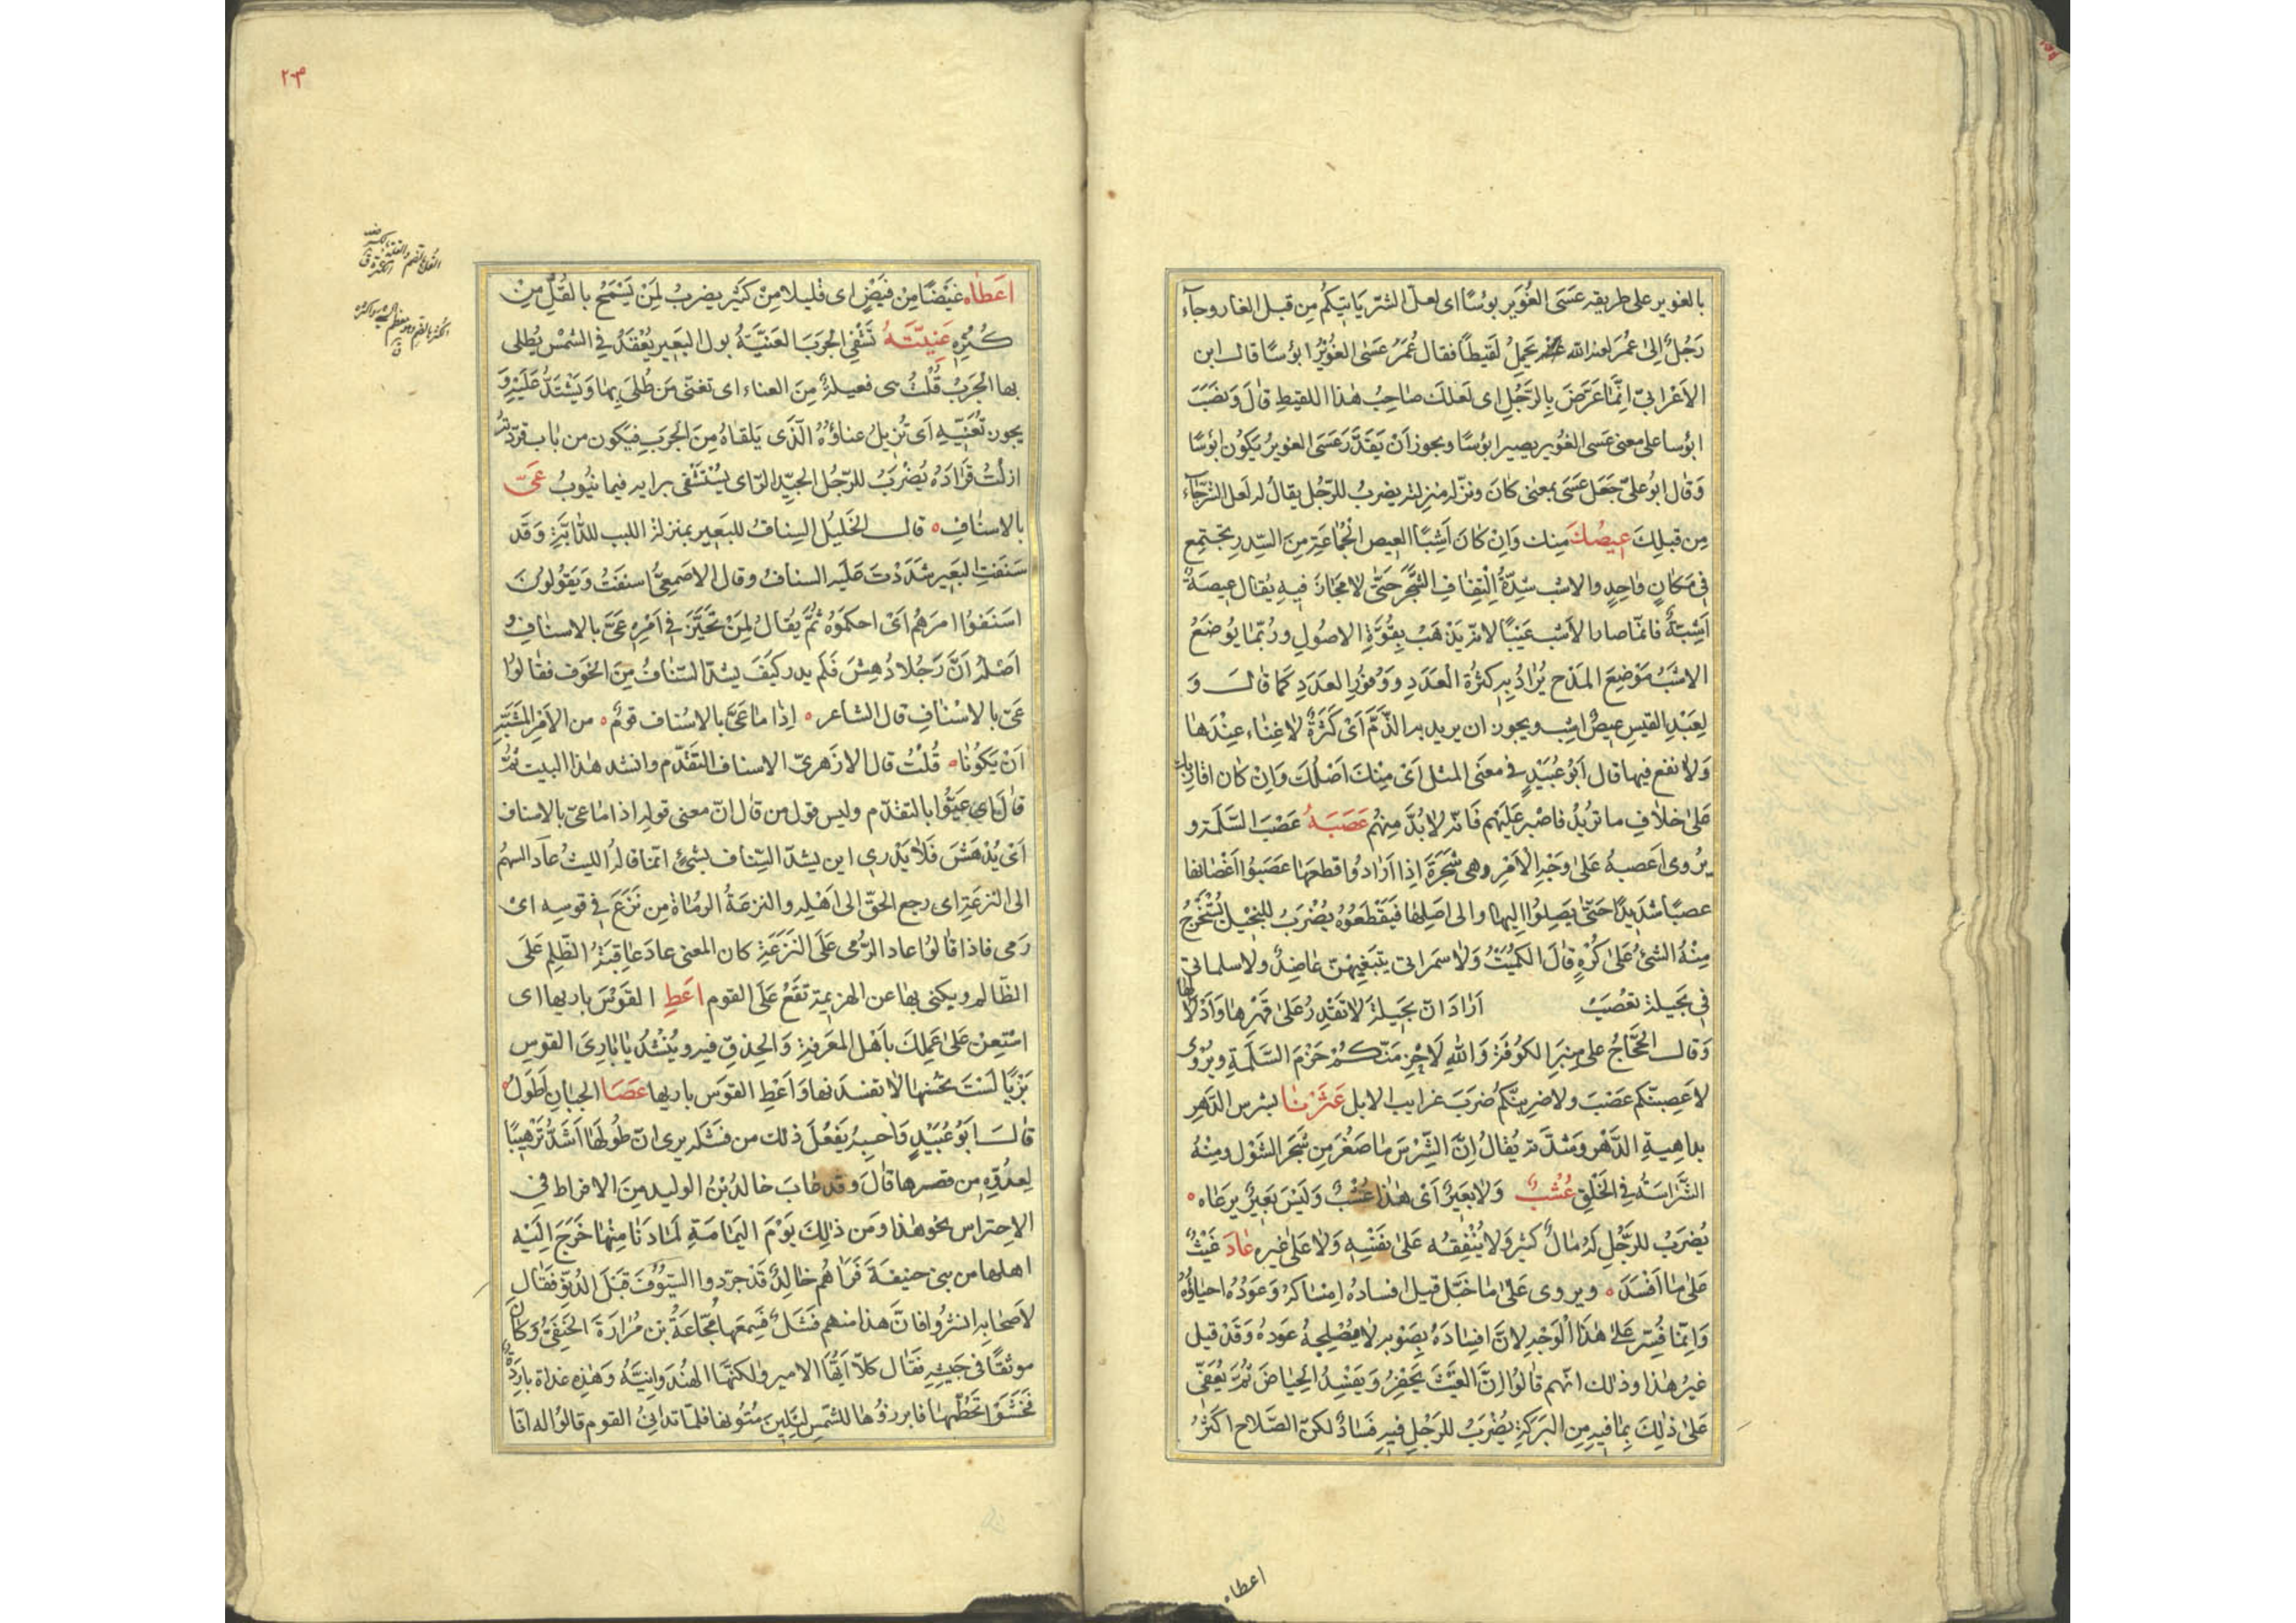 بالغوير على طريقه عَسَى الغُوَير بوسًا اى لعلّ الشرّ ياتيكم مِن قبل الغار وجاء
رَجُلٌ اِلىٰ عُمَر لعنه الله يَحمِلُ لَقيطاً فقال عُمَرُ عَسَى الغُوَيْرُ ابؤسًا قال ابن
الاَعْرابىّ اِنَّمَا عَرَّضَ بِالرَّجُلِ اى لَعلكَ صَاحِبُ هٰذا اللقيطِ قالَ وَنَصَبَ
ابؤسا على معنى عَسى الغُوير يصير ابؤسًا ويجوز اَنْ يَقدَّرَ عَسَى الغويرُ يَكُون ابؤسًا
وَقال ابوُ علىّ جَعَل عَسَى بمعنٰى كانَ ونزّله منزلته يضربُ للرّجُل يقالُ له لعل الشرّ جَاء
مِن قبلِكَ عِيصُكَ مِنك وَاِنْ كانَ اَشِبًا العيص الجُماعَة مِنَ السِّدر يَجتمِع
فى مَكانٍ واحِدٍ والاشب شِدّةُ اِلْتِفافِ الشَّجَرِ حَتّٰى لا مَجَازَ فيهِ يُقال عِيصَةٌ
اَشِبَةٌ فانمّا صار الاَشب عَيبًا لانّه يَذهَبُ بِقُوَّةِ الاصُولِ ورُبّما يُوضَعُ
الاشبُ مَوْضِعَ المَدْح يُرادُ بِهِ كثرَةُ العَدَدِ ووُفُورُ العدَدِ كَما قالَ وَ
لِعَبْدِ القيسِ عيصٌ اشِب ويجوز ان يريد به الذَّمَّ اَىْ كَثرَةٌ لاٰ غِناء عِنْدَها
وَلا نفع فيها قال اَبُو عُبَيْدٍ فى معنَى المثل اَىْ مِنْكَ اَصْلُكَ وَاِنْ كانَ اقاربك
عَلىٰ خلافِ ما تُريدُ فاصْبِر عَلَيْهم فَانّه لابُدَّ مِنْهُم عَصَبَهُ عَصْبَ السَّلَمَةِ و
يرُوى اَعصبهُ عَلىٰ وَجْهِ الاَمْرِ وهى شَجَرَةٌ اِذا اَرَادُوا قطعَها عَصَبُوا اَغْصَانَها
عصبًا شَدِيدًا حَتّٰى يَصِلُوا اِلَيها والى اَصلِها فيَقْطَعُوهُ يُضْرَبُ للبَخِيْلِ يُسْتَخْرَجُ
مِنْهُ الشَّئُ عَلىٰ كُرْهٍ قالَ الكُمَيْتُ وَلا سَمراتى يتَبَغيهنّ عاضِدٌ ولا سلماتى
فى بَجيلةَ تعْصَبُ اَرادَ انّ بَجيلةَ لا تَقْدِرُ عَلىٰ قَهْرِها وَاَذلالها
وَقال الحَجّاجُ على مِنبَر الكوُفَة وَاللهِ لَاحْزِمَنّكُمْ حَزْمَ السَّلَمَةِ ويُرْوٰى
لاعصبَنّكم عَصْبَ ولاضرِبَنَّكُم ضَربَ غرايب الابل عَثَرْنا بشرس الدَّهرِ
بداهِيةِ الدَّهْرِ ومثله يُقالُ اِنَّ الشّرْسَ ما صَغُرَ مِن شَجَر الشَّوْل ومِنْهُ
الشَّرَاسَةُ فى الخُلُقِ عُشْبٌ وَلا بَعيرٌ اَىْ هٰذا عُشْبٌ وَلَيْسَ بَعِيرٌ يرعَاه
يُضرَبُ للرَّجُلِ لَهُ مالٌ كَثيرٌ وَلا يُنْفِقُه عَلىٰ نَفْسِهِ وَلا عَلىٰ غيره عادَ غَيْثٌ
عَلىٰ ما اَفْسَدَ ويروى عَلىٰ ما خَبّل قيل افسادُه اِمْسَاكُهُ وَعَوْدُه احياؤُهُ
وَاِنّما فُسِّر عَلىٰ هٰذَا الْوَجْهِ لاِنَّ افسَادَهُ بِصَوْبِه لا يُصْلِحهُ عَودهُ وَقَدْ قيل
غيرُ هٰذا وذٰلك انّهم قالُوا اِنَّ الغَيْثَ يَحْفِرُ وَيَفْسِدُ الحِياضَ ثُمَّ يُعَفّى
عَلىٰ ذٰلِكَ بِما فيهِ مِن البَرَكَةِ يُضْرَبُ للرَّجُلِ فيهِ فَسَادٌ لكنّ الصَّلاح اكْثرُ
اعطاه
٢٠٣
اَعطَاه غَيْضًا مِن فَيْضٍ اى قليلا مِنْ كَثير يضربُ لِمَنْ يَسْمَحُ بالقُلِّ مِنْ
كُثْرِهِ عَنِيّتُهُ تَشْفِى الجَرَبَ العَنيَّةُ بول البَعير يُعْقَدُ فى الشمْس يُطلى
بها الجَرَبُ قُلْتُ هى فعيلةٌ مِنَ العناء اى تعنى مَن طُلِىَ بِها وَيَشْتَدُّ عَلَيْهِ وَ
يجوز تُعَنّيهِ اَى تُزيلُ عناؤُهُ الَّذى يَلقاهُ مِنَ الجَرَبِ فيَكون من باب قرّدته
ازلْتُ قرادَهُ يُضْرَبُ للرّجُلِ الجيّد الرّاى يُسْتَشْفى برايه فيما يَنُوبُ عَىَّ
بالاسنافِ قال الخَليلُ السِنافُ للبَعِير بمنزلة اللبب للدّابَّةِ وَقَد
سَنَفتُ البَعِير شَدَدْتَ عَلَيه السنافُ وقال الاصمعِىّ اسنفَتُ وَيَقُولُونَ
اسنَفُوا امرَهُم اَىْ احكمُوهُ ثُمَّ يُقالُ لِمَنْ تَحَيَّرَ فى اَمْرِهِ عَىَّ بالاسنافِ و
اَصْلُهُ اَنَّ رَجُلا دُهِشَ فَلَم يدر كَيفَ يشدّ السّنافُ مِنَ الخَوف فقالوُا
عَىّ بالاسْنافِ قال الشاعر اِذا ما عَىَّ بالاسْناف قومٌ من الاَمْرِ المُشَبَّهِ
اَنْ يَكُونا قُلْتُ قال الازهَرِىّ الاسناف التقَدُّم وانشد هٰذا البيت ثُمّ
قالَ اى عَيُّوا بالتقدّم وليس قول من قال انّ معنى قوله اذا ما عىّ بالاسناف
اَىْ يُدْهَشَ فَلا يَدْرِى اين يشدّ السِّناف بشئٍ انّما قالهُ الليثُ عاَد السهمُ
الى النزعَةِ اى رجع الحَقّ الى اَهْلِه والنزعَةُ الرماة مِن نَزَعَ فى قوسِه اىْ
رَمى فاذا قالوُا عاد الرّمى عَلَى النَزَعَةِ كان المعنى عادَ عاقِبَةُ الظّلمِ عَلَى
الظّالم ويكنى بها عن الهزيمة تَقَعُ عَلَى القوم اَعطِ القَوْسَ باريها اى
اسْتَعِنْ عَلىٰ عَمَلِكَ بِاَهْل المَعرِفةِ وَالحِذقِ فيه ويُنْشَدُ يا بارِىَ القوسِ
بَرْيًا لَسْتَ تحْسنُها لا تفسدَنها وَاَعْطِ القوَس باريها عَصَا الجبانِ اَطوَلُ
قالَ ابَوُ عُبَيْدٍ وَاحسِبهُ يَفعُلَ ذٰلك من فشَله يرى انّ طُولَها اَشَدُّ تَرْهِيبًا
لِعَدُوِّهِ مِن قصرها قالَ وقد عابَ خالدُ بْنُ الوليد مِنَ الافراط فى
الاحتِراسِ نحو هٰذا ومَن ذٰلِكَ يَوْمَ اليَمامَةِ لَمّا دَنا مِنْها خَرَجَ اِلَيْهِ
اهلها من بنى حنيفةَ فَراهُم خالِدٌ قَدْ جرّدوا السّيُوفَ قبَلَ الدُنوّ فقال
لاَصحابِهِ ابشرُوا فانّ هٰذا منهم فشَلٌ فسمعها مُجّاعَةُ بن مُرارةَ الحَنَفىُّ وَكانَ
موثقًا فى جَيشِهِ فقال كلّا اَيّها الامير ولكنّها الهُندَوانِيَّةُ وَهٰذِه غداة بارِدَةٌ
فخَشَوا تَحَطُّمَها فابرزوُها للشمْسِ لتَلينَ مُتُونها فلمّا تدانىَ القوم قالوا له انّا